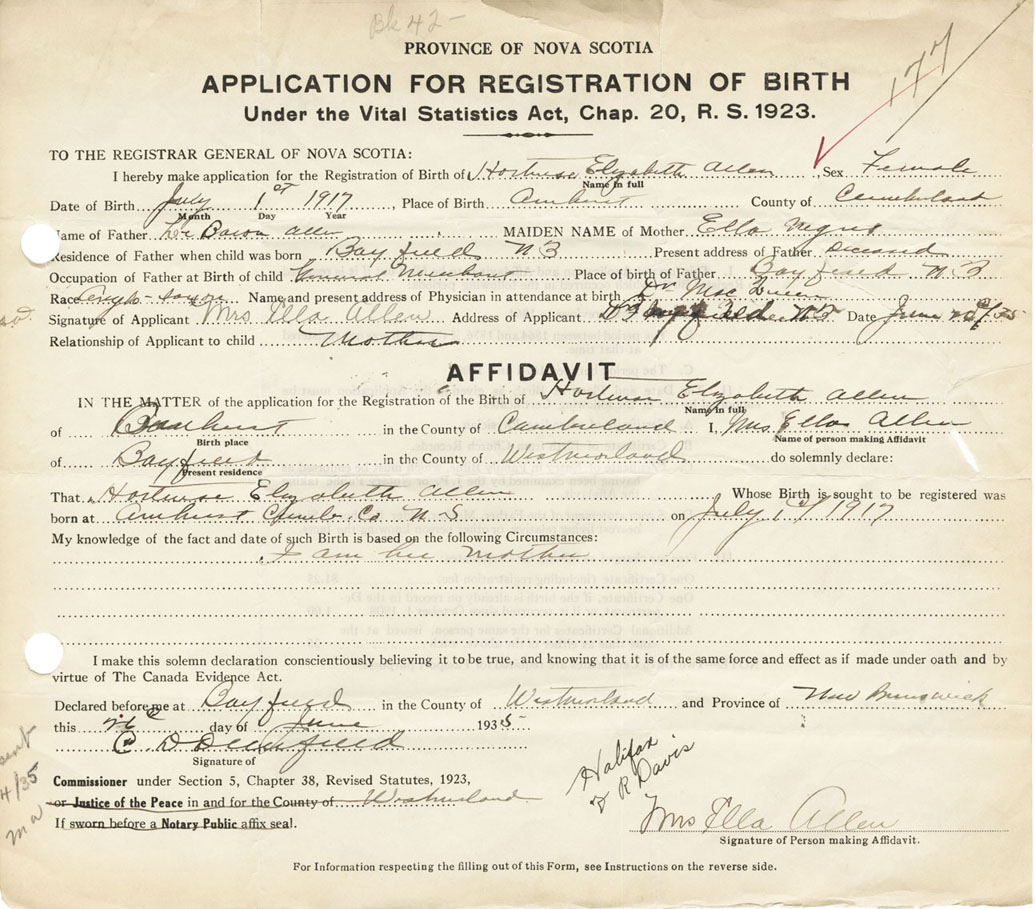 Bk 42-
PROVINCE OF NOVA SCOTIA
APPLICATION FOR REGISTRATION OF BIRTH
Under the Vital Statistics Act, Chap. 20, R. S. 1923.
177
TO THE REGISTRAR GENERAL OF NOVA SCOTIA:
I hereby make application for the Registration of Birth of Elizabeth Allen Sex Female
Name in full
Date of Birth July 1st 1917, Place of Birth Amherst County of Cumberland
Month Day Year
Name of Father Allen MAIDEN NAME of Mother Ella
Residence of Father when child was born Bayfield N B Present address of Father
Occupation of Father at Birth of child General Merchant Place of birth of Father Bayfield N B
Race Name and present address of Physician in attendance at birth Dr Mac
Signature of Applicant Mrs Ella Allen Address of Applicant Bayfield N B Date June
Relationship of Applicant to child Mother
AFFIDAVIT
IN THE MATTER of the application for the Registration of the Birth of Elizabeth Allen
Name in full
of Amherst in the County of Cumberland I, Mrs. Ella Allen
Birth place Name of person making Affidavit
of Bayfield in the County of Westmorland do solemnly declare:
Present residence
That Elizabeth Allen Whose Birth is sought to be registered was
born at Amherst Cumb. Co. N-S on July 1st 1917
My knowledge of the fact and date of such Birth is based on the following Circumstances:
I am her Mother
I make this solemn declaration conscientiously believing it to be true, and knowing that it is of the same force and effect as if made under oath and by
virtue of The Canada Evidence Act.
Declared before me at Bayfield in the County of Westmorland and Province of New Brunswick
this day of June 1935
C.
Signature of
Commissioner under Section 5, Chapter 38, Revised Statutes, 1923,
or Justice of the Peace in and for the County of Westmorland
If sworn before a Notary Public affix seal.
Halifax
R Davis
Mrs Ella Allen
Signature of Person making Affidavit.
For Information respecting the filling out of this Form, see Instructions on the reverse side.